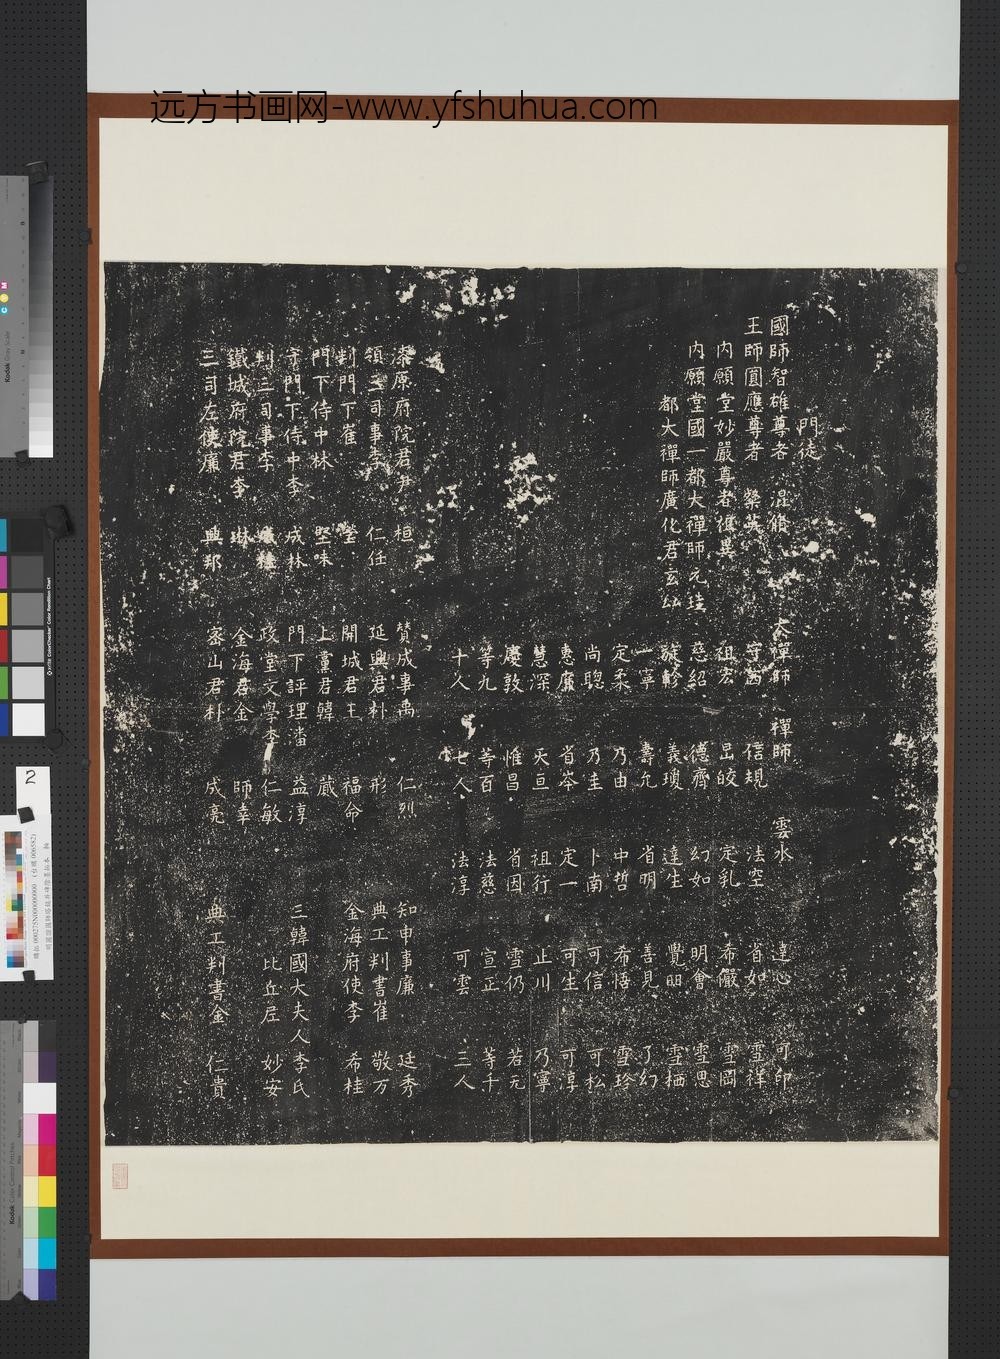 远方书画网-www.yfshuhua.com
門徒
國師智雄尊者 混脩 大禪師 禪師 雲水 達心 可印
王師圓應尊者 粲英 守 信規 法空 省如 雪祥
內願堂妙嚴尊者 祖異 祖宏 旵皎 定乳 希嚴 雪岡
內願堂國一都大禪師元珪 慈紹 德齊 幻如 明會 雪思
都大禪師廣化君玄 旋軫 義瓊 達生 覺明 雪栖
一寧 壽允 省明 善見 了幻
定柔 乃由 中哲 希恬 雪珍
尚聰 乃圭 卜南 可信 可松
惠廉 省岑 定一 可生 可淳
慧深 天亘 祖行 止川 乃寧
慶敦 惟昌 省因 雪仍 若无
等九 等百 法慈 宣正 等千
十人 七人 法淳 可雲 三人
漆原府院君尹 桓 贊成事禹 仁烈 知申事廉 廷秀
領三司事李 仁任 延興君朴 形 典工判書崔 敬万
判門下崔 瑩 開城君王 福命 金海府使李 希桂
門下侍中林 堅味 上黨君韓 蕆
守門下侍中李 成林 門下評理潘 益淳 三韓國大夫人李氏
判三司事李 政堂文學李 仁敏 比丘尼 妙安
鐵城府院君李 琳 金海君金 師幸
三司左使廉 興邦 密山君朴 成亮 典工判書金 仁貴
2
Kodak Gray Scale
Kodak Color Control Patches